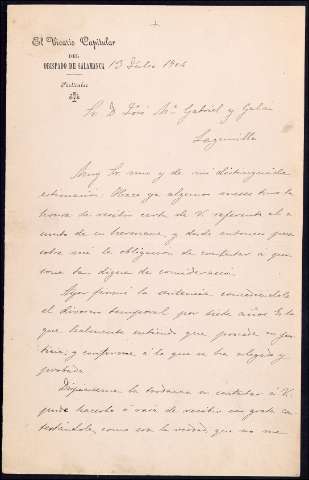 El Vicario Capitular
DEL
OBISPADO DE SALAMANCA 13 Julio 1904
Particular
Sr. D. José Mª Gabriel y Galán
Lagunilla
Muy Sr. mio y de mi distinguida
estimación: Hace ya algunos meses tuve la
honra de recibir carta de V. referente al a
sunto de su hermana, y desde entonces pesa
sobre mí la obligación de contestar a per
sona tan digna de consideración.
Ayer firmé la sentencia concediendole
el divorcio temporal por siete años. Es lo
que lealmente entiendo que procede en jus
ticia, y conforme á lo que se ha alegado y
probado.
Dispénseme la tardanza en contestar á V.
pude hacerlo á raiz de recibir su grata
como con la verdad, que no me